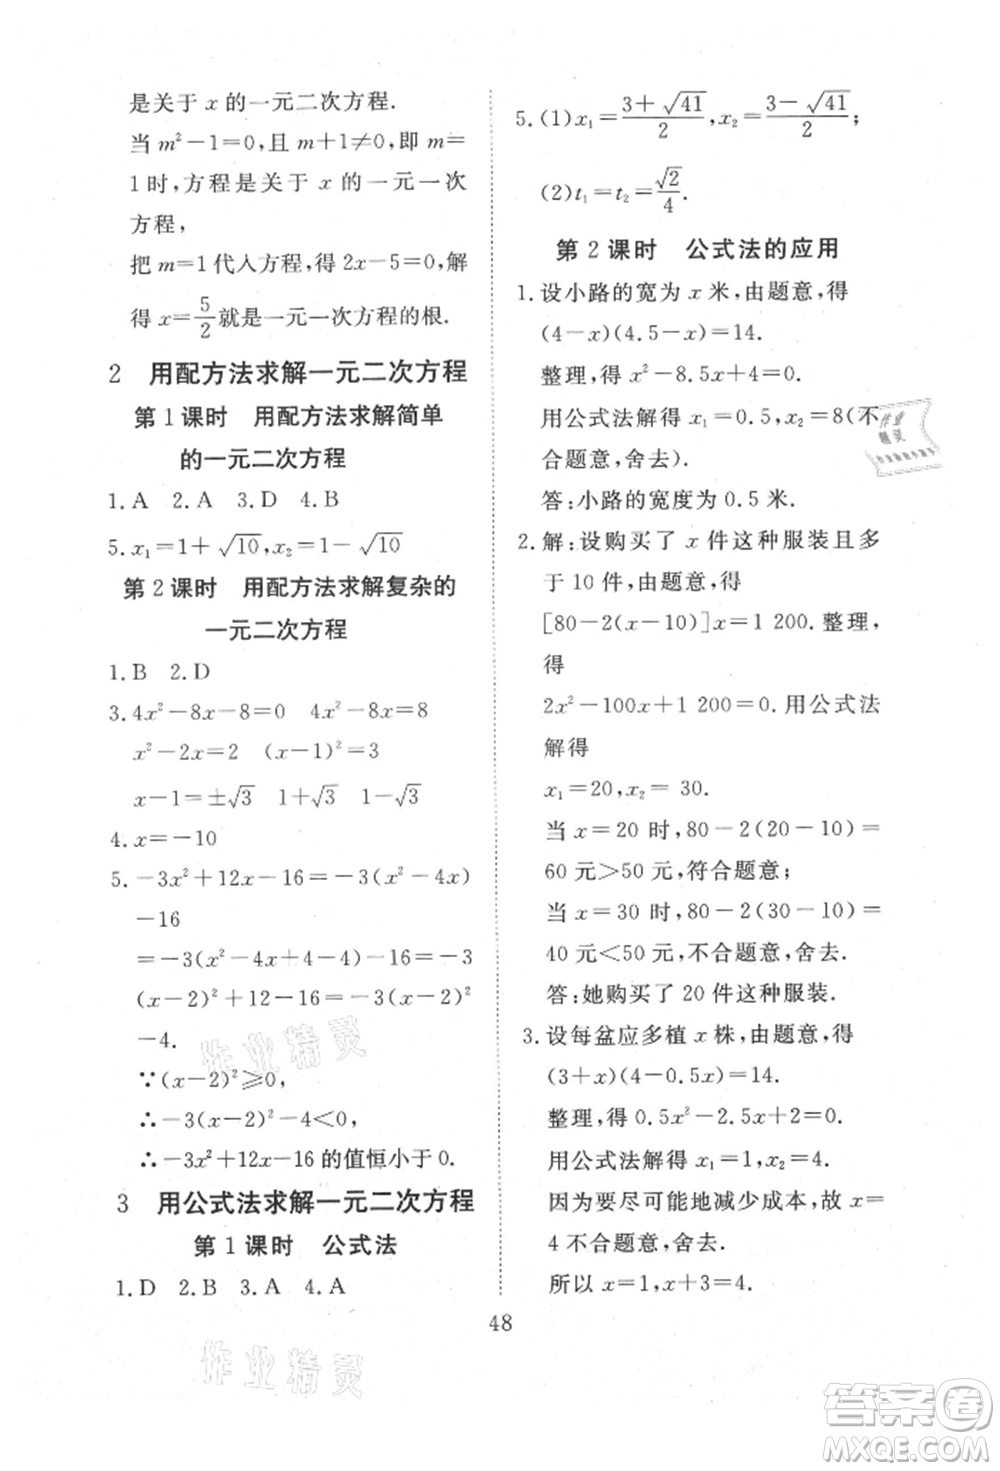 是关于 x 的一元二次方程.
当 m²-1=0,且 m+1≠0,即 m=
1时,方程是关于 x 的一元一次
方程,
把 m=1代入方程,得 2x-5=0,解
得 x=5/2就是一元一次方程的根.
2 用配方法求解一元二次方程
第1课时 用配方法求解简单
的一元二次方程
1.A 2.A 3.D 4.B
5.x₁=1+√10,x₂=1-√10
第2课时 用配方法求解复杂的
一元二次方程
1.B 2.D
3.4x²-8x-8=0 4x²-8x=8
x²-2x=2 (x-1)²=3
x-1=±√3 1+√3 1-√3
4.x=-10
5.-3x²+12x-16=-3(x²-4x)
-16
=-3(x²-4x+4-4)-16=-3
(x-2)²+12-16=-3(x-2)²
-4.
∵(x-2)²≥0,
∴-3(x-2)²-4<0,
∴-3x²+12x-16 的值恒小于 0.
3 用公式法求解一元二次方程
第1课时 公式法
1.D 2.B 3.A 4.A
5.(1)x₁=(3+√41)/2,x₂=(3-√41)/2;
(2)t₁=t₂=√2/4.
第2课时 公式法的应用
1.设小路的宽为 x 米,由题意,得
(4-x)(4.5-x)=14.
整理,得 x²-8.5x+4=0.
用公式法解得 x₁=0.5,x₂=8(不
合题意,舍去).
答:小路的宽度为 0.5 米.
2.解:设购买了 x 件这种服装且多
于 10 件,由题意,得
[80-2(x-10)]x=1 200.整理,
得
2x²-100x+1 200=0.用公式法
解得
x₁=20,x₂= 30.
当 x=20 时,80-2(20-10)=
60 元>50 元,符合题意;
当 x=30 时,80-2(30-10)=
40 元<50 元,不合题意,舍去.
答:她购买了 20 件这种服装.
3.设每盆应多植 x 株,由题意,得
(3+x)(4-0.5x)=14.
整理,得 0.5x²-2.5x+2=0,
用公式法求解,得 x₁=1,x₂=4.
因为要尽可能地减少成本,故 x=
4 不合题意,舍去.
所以 x=1,x+3=4.
48
作业精灵
作业精灵
作业
精灵
答案卷
MXQE.COM